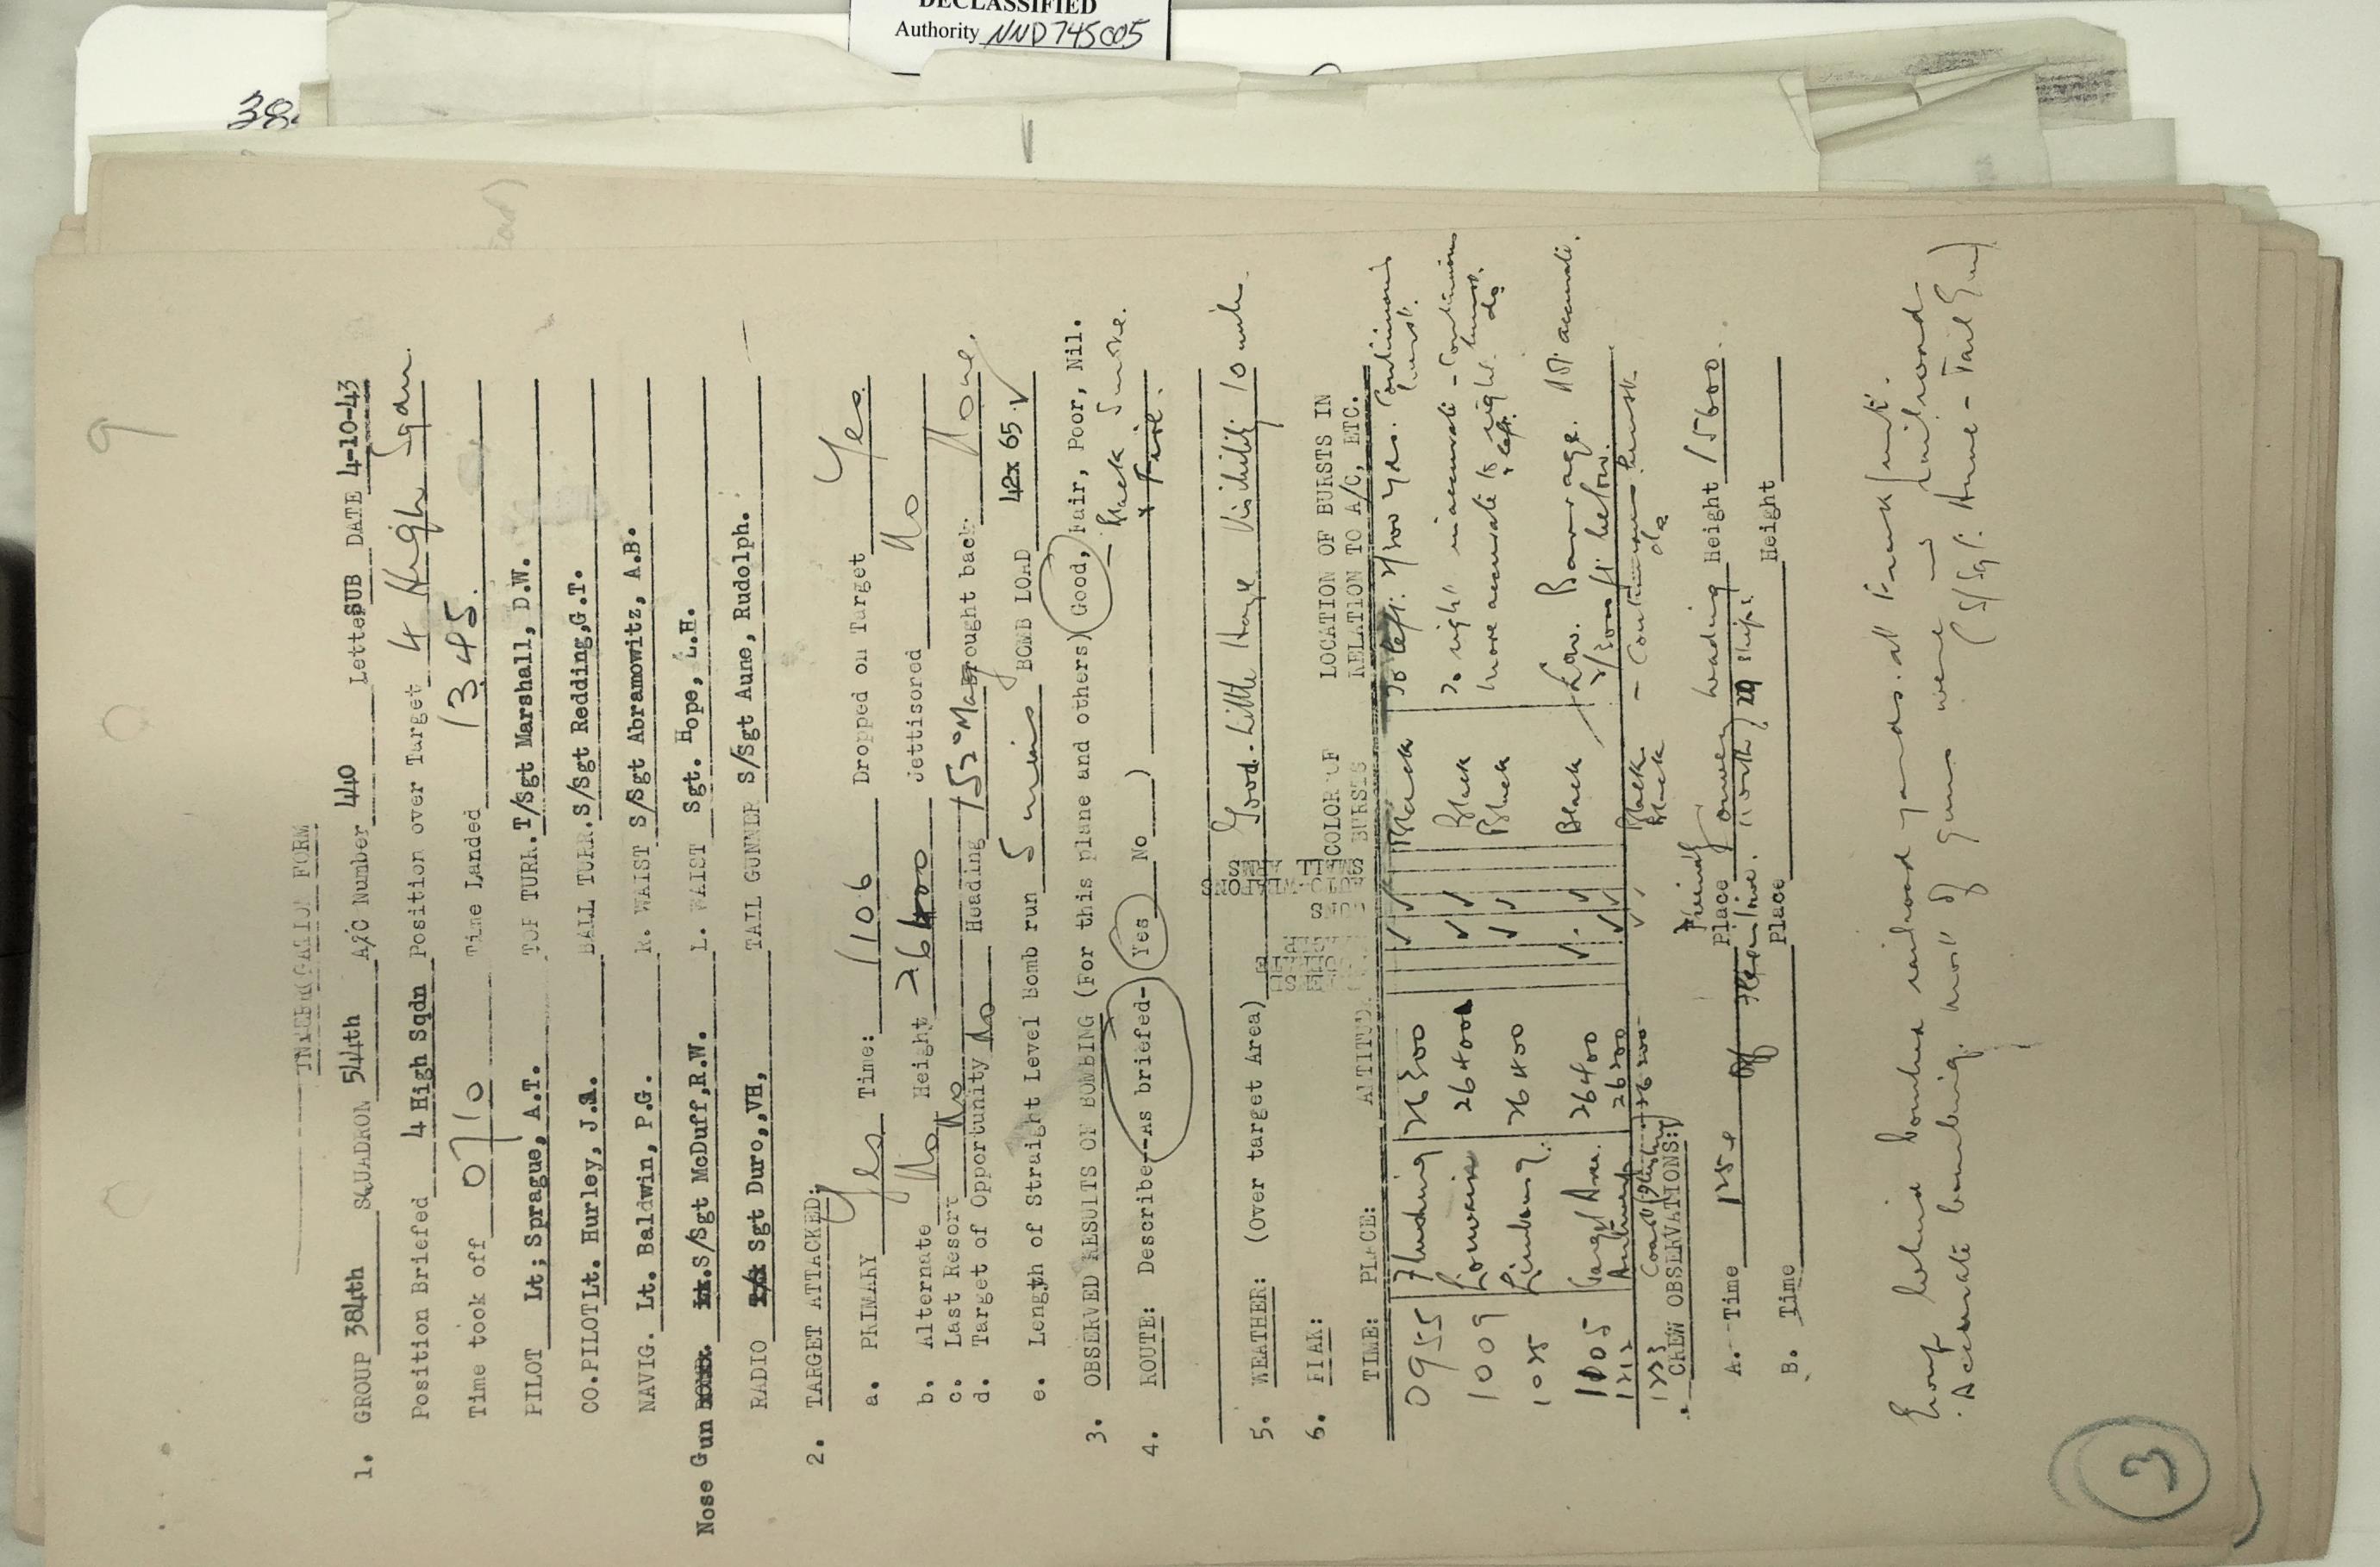 DECLASSIFIED
Authority NND745005
384
9
INTERROGATION FORM
1. GROUP 384th SQUADRON 544th A/C Number 440 Letter SUB DATE 4-10-43
Position Briefed 4 High Sqdn Position over Target 4 High Sqdn.
Time took off 0710 Time Landed 1345.
PILOT Lt; Sprague, A.T. TOP TURR. T/Sgt Marshall, D.W.
CO.PILOT Lt. Hurley, J.J. BALL TURR. S/Sgt Redding,G.T.
NAVIG. Lt. Baldwin, P.G. R. WAIST S/Sgt Abramowitz, A.B.
Nose Gun S/Sgt McDuff,R.W. L. WAIST Sgt. Hope, L.H.
RADIO Sgt Duro,,VH, TAIL GUNNER S/Sgt Aune, Rudolph.
2. TARGET ATTACKED:
a. PRIMARY Yes Time: 1106 Dropped on Target Yes.
b. Alternate No Height 26400 Jettisored No
c. Last Resort No
d. Target of Opportunity No Heading 152° Mag Brought back. None.
e. Length of Straight Level Bomb run 5 mins BOMB LOAD 42x 65 ✓
3. OBSERVED RESULTS OF BOMBING (For this plane and others) Good, Fair, Poor, Nil.
4. ROUTE: Describe--As briefed-) Yes No ) - Black Smoke.
+ Fire.
5. WEATHER: (Over target Area) Good. Little Haze Visibility 10 mile.
6. FLAK:
TIME: PLACE: ALTITUDE COLOR OF BURSTS LOCATION OF BURSTS IN RELATION TO A/C, ETC.
0955 26300 ✓ ✓ Black To left: yds. Continuous burst.
1009 Louvain 26400 ✓ ✓ Black To right inaccurate - Continuous burst.
1025 Limburg. 26400 ✓ ✓ Black more accurate to right & left. do
1105 Target Area. 26400 ✓ ✓ Black Low. Barrage. Not accurate. ft below.
1212 Antwerp 26200 ✓ ✓ Black - Continuous burst
1223 Coast 26200 ✓ ✓ Black do
CREW OBSERVATIONS:
A. Time Place heading Height 15600.
north, ships
B. Time Place Height
Group behind bombed railroad yards. at Frankfurt.
Accurate bombing. most of guns were railroad
(S/Sgt. Aune - Tail Gun)
3